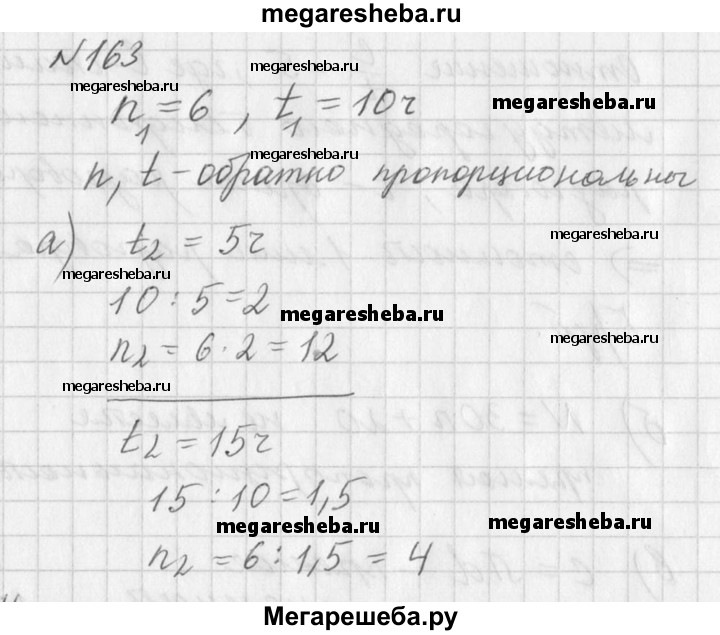 megaresheba.ru
N163
megaresheba.ru
megaresheba.ru
n₁ = 6 , t₁ = 10ч
megaresheba.ru
megaresheba.ru
n, t - обратно пропорциональны
а) t₂ = 5ч
megaresheba.ru
10 : 5 = 2
megaresheba.ru
n₂ = 6 · 2 = 12
megaresheba.ru
megaresheba.ru
t₂ = 15ч
15 : 10 = 1,5
megaresheba.ru
megaresheba.ru
n₂ = 6 : 1,5 = 4
Мегарешеба.ру